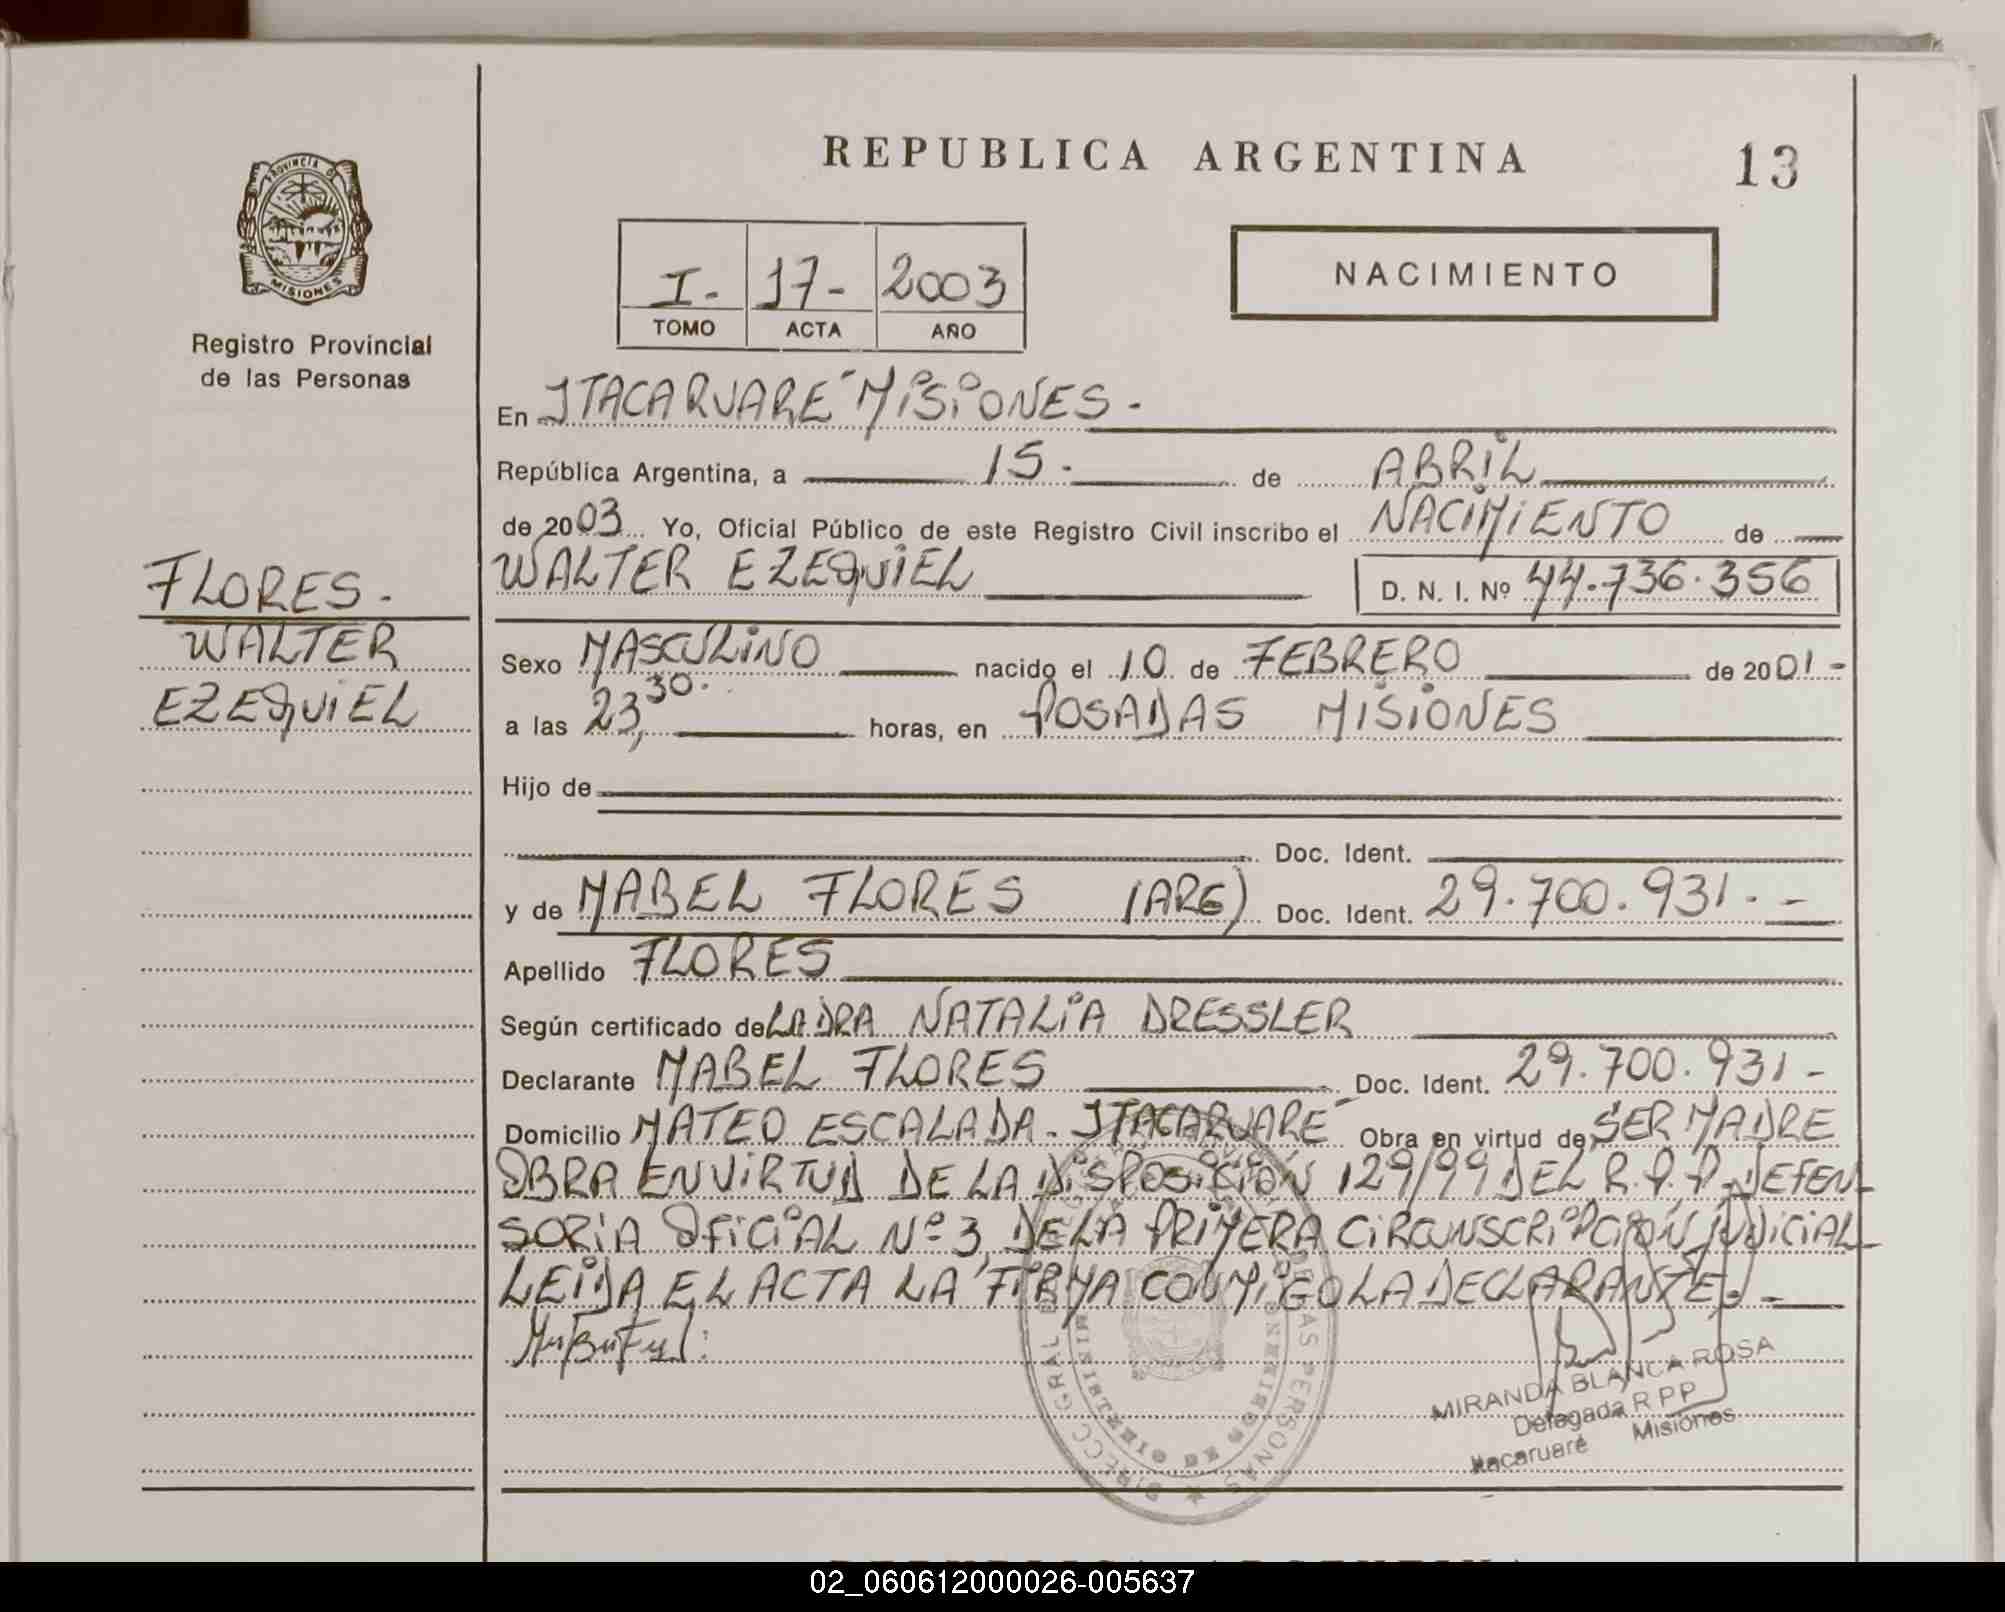 PROVINCIA DE
MISIONES
Registro Provincial
de las Personas
FLORES.-
WALTER
EZEQUIEL
REPUBLICA ARGENTINA
13
I.- 17- 2003
TOMO ACTA AÑO
NACIMIENTO
En ITACARUARE MISIONES.-
República Argentina, a 15.- de ABRIL
de 2003 Yo, Oficial Público de este Registro Civil inscribo el NACIMIENTO de
WALTER EZEQUIEL D. N. I. Nº 44.736.356
Sexo MASCULINO nacido el 10 de FEBRERO de 2001-
a las 23,30. horas, en POSADAS MISIONES
Hijo de
Doc. Ident.
y de MABEL FLORES (ARG) Doc. Ident. 29.700.931.-
Apellido FLORES
Según certificado de LA DRA NATALIA DRESSLER
Declarante MABEL FLORES Doc. Ident. 29.700.931-
Domicilio MATEO ESCALADA. ITACARUARE Obra en virtud de SER MADRE
OBRA EN VIRTUD DE LA DISPOSICION 129/99 DEL R.P.P. DEFEN-
SORIA OFICIAL Nº 3, DE LA PRIMERA CIRCUNSCRIPCION JUDICIAL
LEIDA EL ACTA LA FIRMA CONMIGO LA DECLARANTE.-
MIRANDA BLANCA ROSA
Delegada R P P
Itacaruaré Misiones
02_060612000026-005637